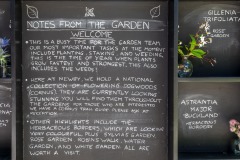 NOTES FROM THE GARDEN
WELCOME
• THIS IS A BUSY TIME FOR THE GARDEN TEAM
OUR MOST IMPORTANT TASKS AT THE MOMENT
INCLUDE PLANTING, STAKING, AND WEEDING,
THIS IS THE TIME OF YEAR WHEN PLANTS
GROW FASTEST AND STRONGEST, THIS ALSO
INCLUDES THE WEEDS!
• HERE AT NEWBY, WE HOLD A NATIONAL
COLLECTION OF FLOWERING DOGWOODS
(CORNUS) THEY ARE CURRENTLY LOOKING
STUNNING YOU WILL FIND THEM THROUGHOUT
THE GARDENS FOR THOSE
HAVE A
• OTHER HIGHLIGHTS INCLUDE THE
HERBACEOUS BORDERS, WHICH ARE LOOKING
VERY COLOURFUL, PLUS SYLVIA'S GARDEN,
ROSE GARDEN, ROBIN'S WALK, WATER
GARDEN, AND WHITE GARDEN ALL ARE
WORTH A VISIT.
GILLENIA
TRIFOLIATA
ROSE
GARDEN
ASTRANTIA
MAJOR
BUCKLAND
HERBACEOUS
BORDERS